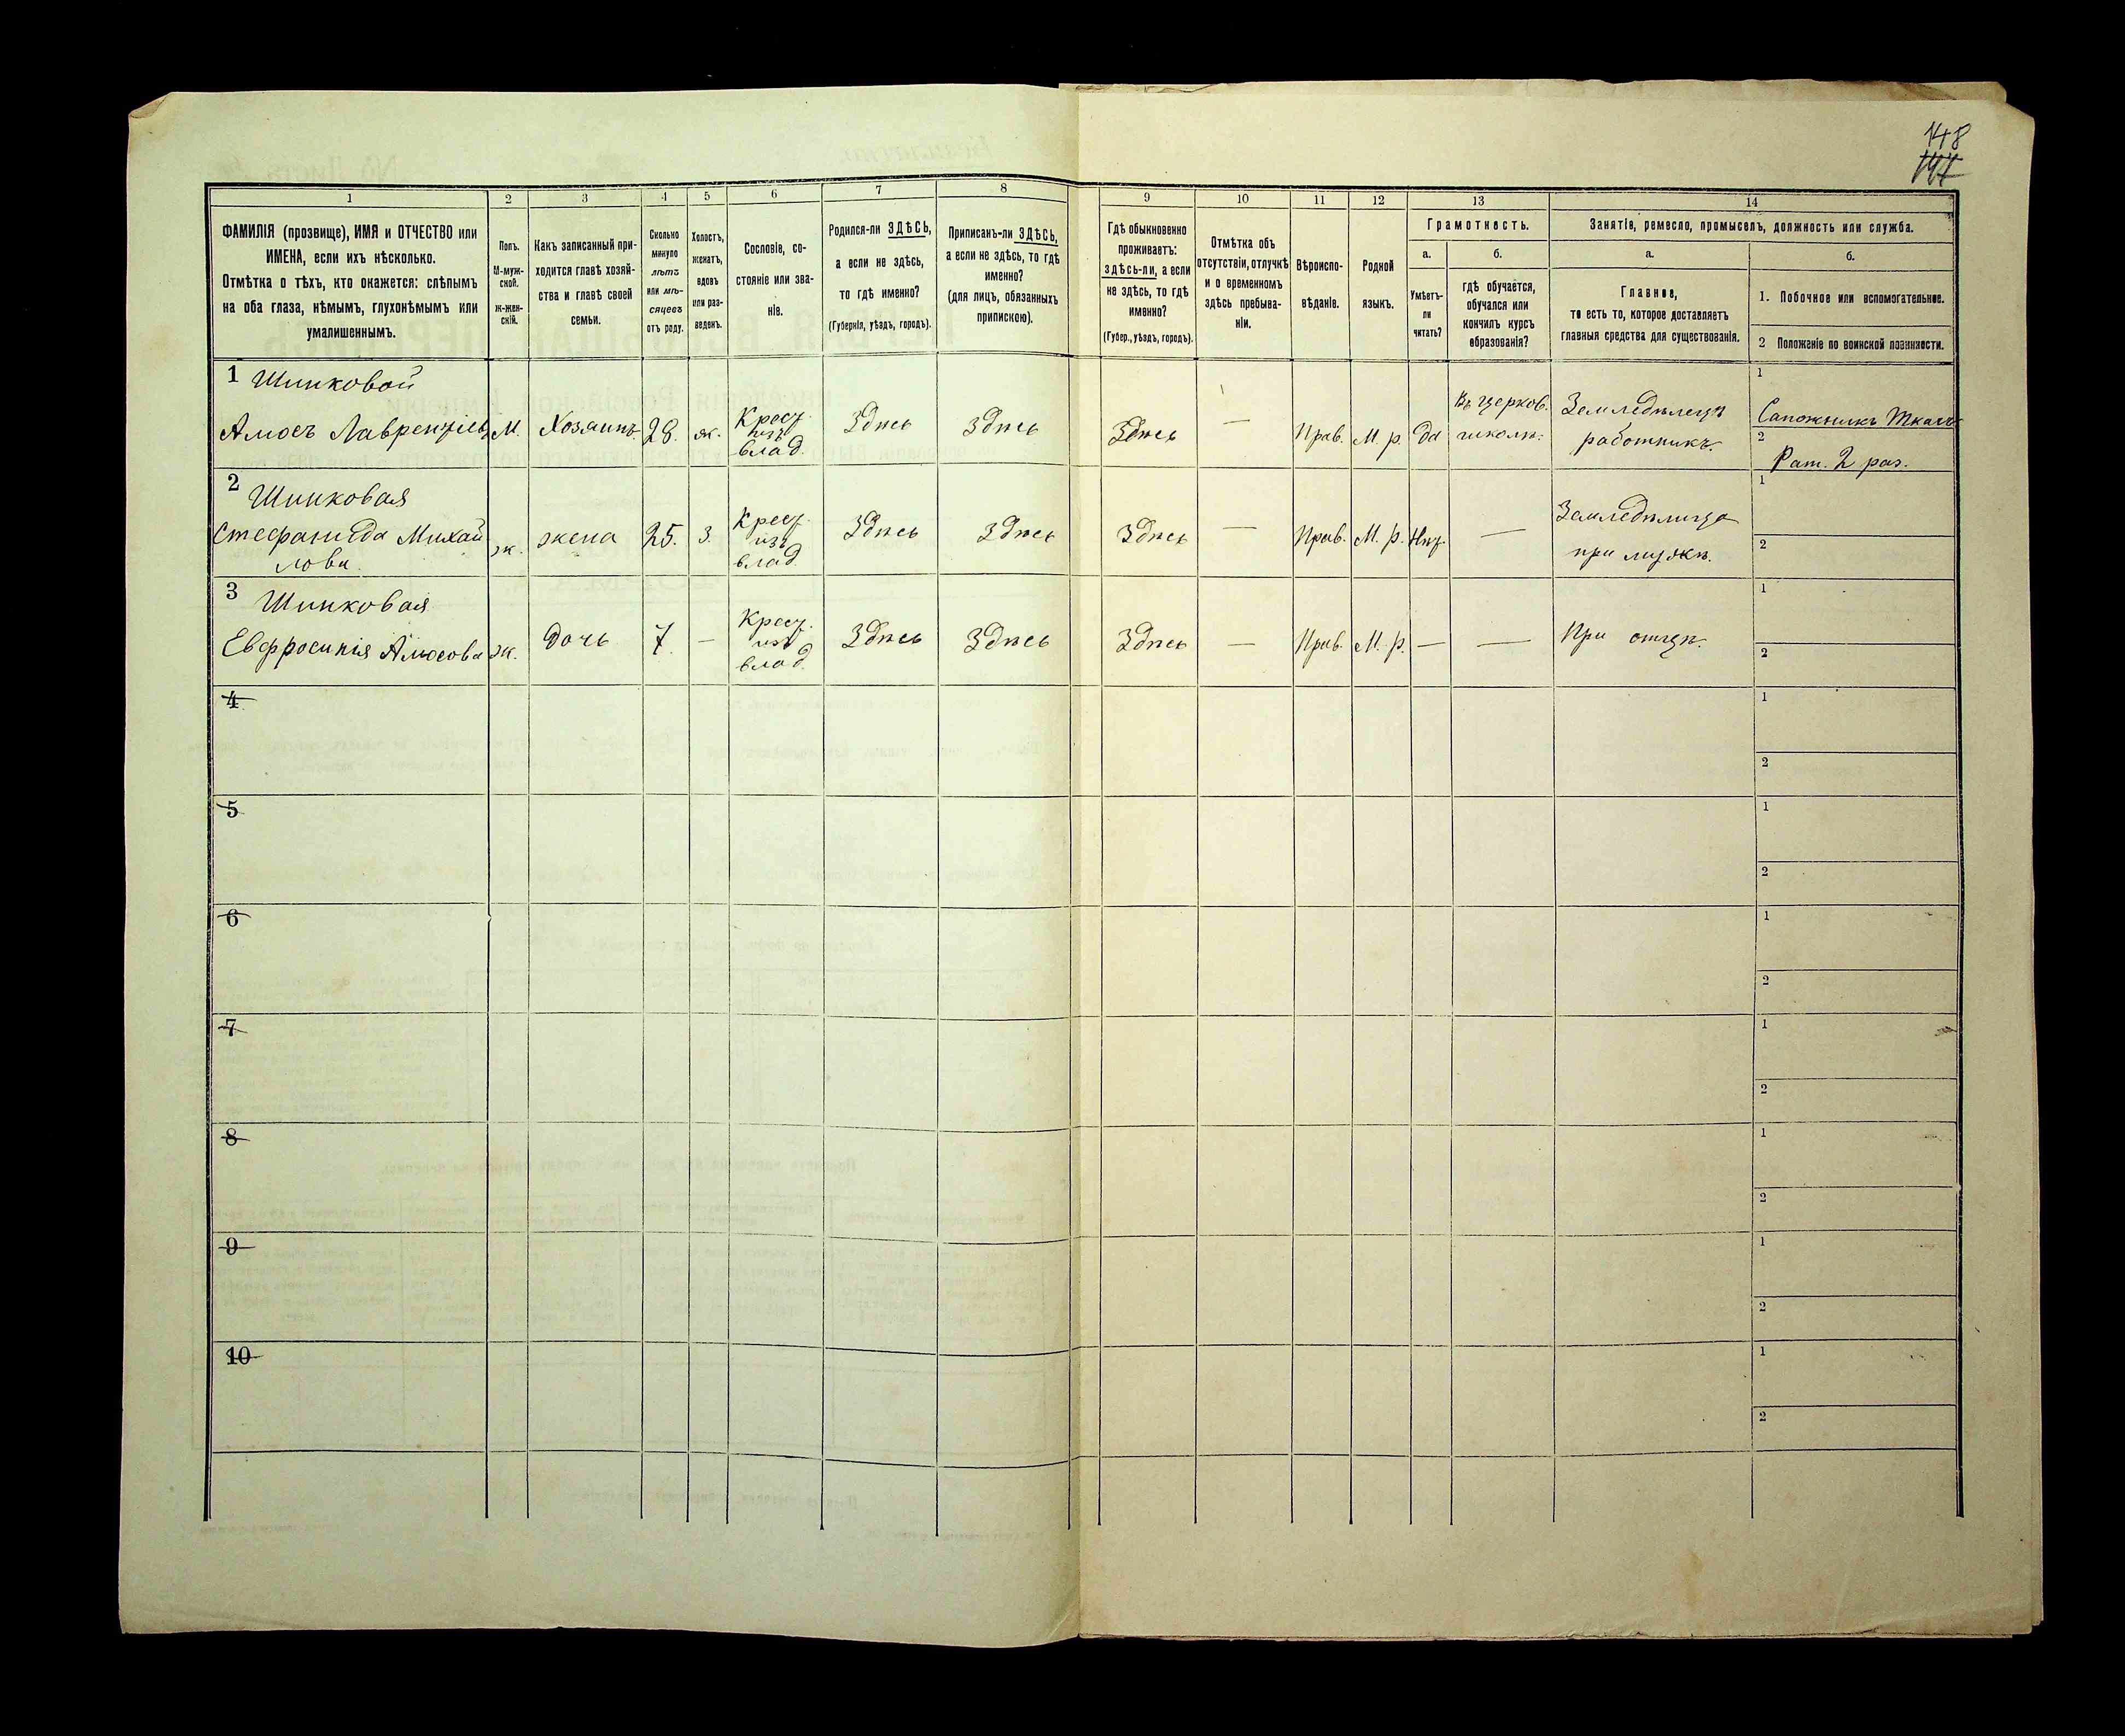 148
147
1
2
3
4
5
6
7
8
9
10
11
12
13
14
ФАМИЛІЯ (прозвище), ИМЯ и ОТЧЕСТВО или
ИМЕНА, если ихъ нѣсколько.
Отмѣтка о тѣхъ, кто окажется: слѣпымъ
на оба глаза, нѣмымъ, глухонѣмымъ или
умалишеннымъ.
Полъ.
М-муж-
ской.
Ж-жен-
скій.
Какъ записанный при-
ходится главѣ хозяй-
ства и главѣ своей
семьи.
Сколько
минуло
лѣтъ
или мѣ-
сяцевъ
отъ роду.
Холостъ,
женатъ,
вдовъ
или раз-
веденъ.
Сословіе, со-
стояніе или зва-
ніе.
Родился-ли ЗДѢСЬ,
а если не здѣсь,
то гдѣ именно?
(Губернія, уѣздъ, городъ).
Приписанъ-ли ЗДѢСЬ,
а если не здѣсь, то гдѣ
именно?
(для лицъ, обязанныхъ
припискою).
Гдѣ обыкновенно
проживаетъ:
здѣсь-ли, а если
не здѣсь, то гдѣ
именно?
(Губер., уѣздъ, городъ).
Отмѣтка объ
отсутствіи, отлучкѣ
и о временномъ
здѣсь пребыва-
ніи.
Вѣроиспо-
вѣданіе.
Родной
языкъ.
Грамотность.
а.
Умѣетъ-
ли
читать?
б.
гдѣ обучается,
обучался или
кончилъ курсъ
образованія?
Занятіе, ремесло, промыселъ, должность или служба.
а.
Главное,
то есть то, которое доставляетъ
главныя средства для существованія.
б.
1. Побочное или вспомогательное.
2 Положеніе по воинской повинности.
1 Шинковой
Амосъ Лаврентіевъ
М.
Хозяинъ
28.
ж.
Крест.
изъ
влад.
Здѣсь
Здѣсь
Здѣсь
—
Прав.
М. р.
да
Въ церков.
школѣ.
Земледѣлецъ
работникъ.
1
Сапожникъ Ткачъ
2
Рат. 2 раз.
2 Шинковая
Стефанида Михай
лова
ж.
жена
25.
З.
Крест.
изъ
влад.
Здѣсь
Здѣсь
Здѣсь
—
Прав.
М. р.
Нѣт
—
Земледѣлица
при мужѣ.
1
2
3 Шинковая
Евфросинія Амосова
ж.
дочь
7
—
Крест.
изъ
влад.
Здѣсь
Здѣсь
Здѣсь
—
Прав.
М. р.
—
—
При отцѣ.
1
2
4
1
2
5
1
2
6
1
2
7
1
2
8
1
2
9
1
2
10
1
2